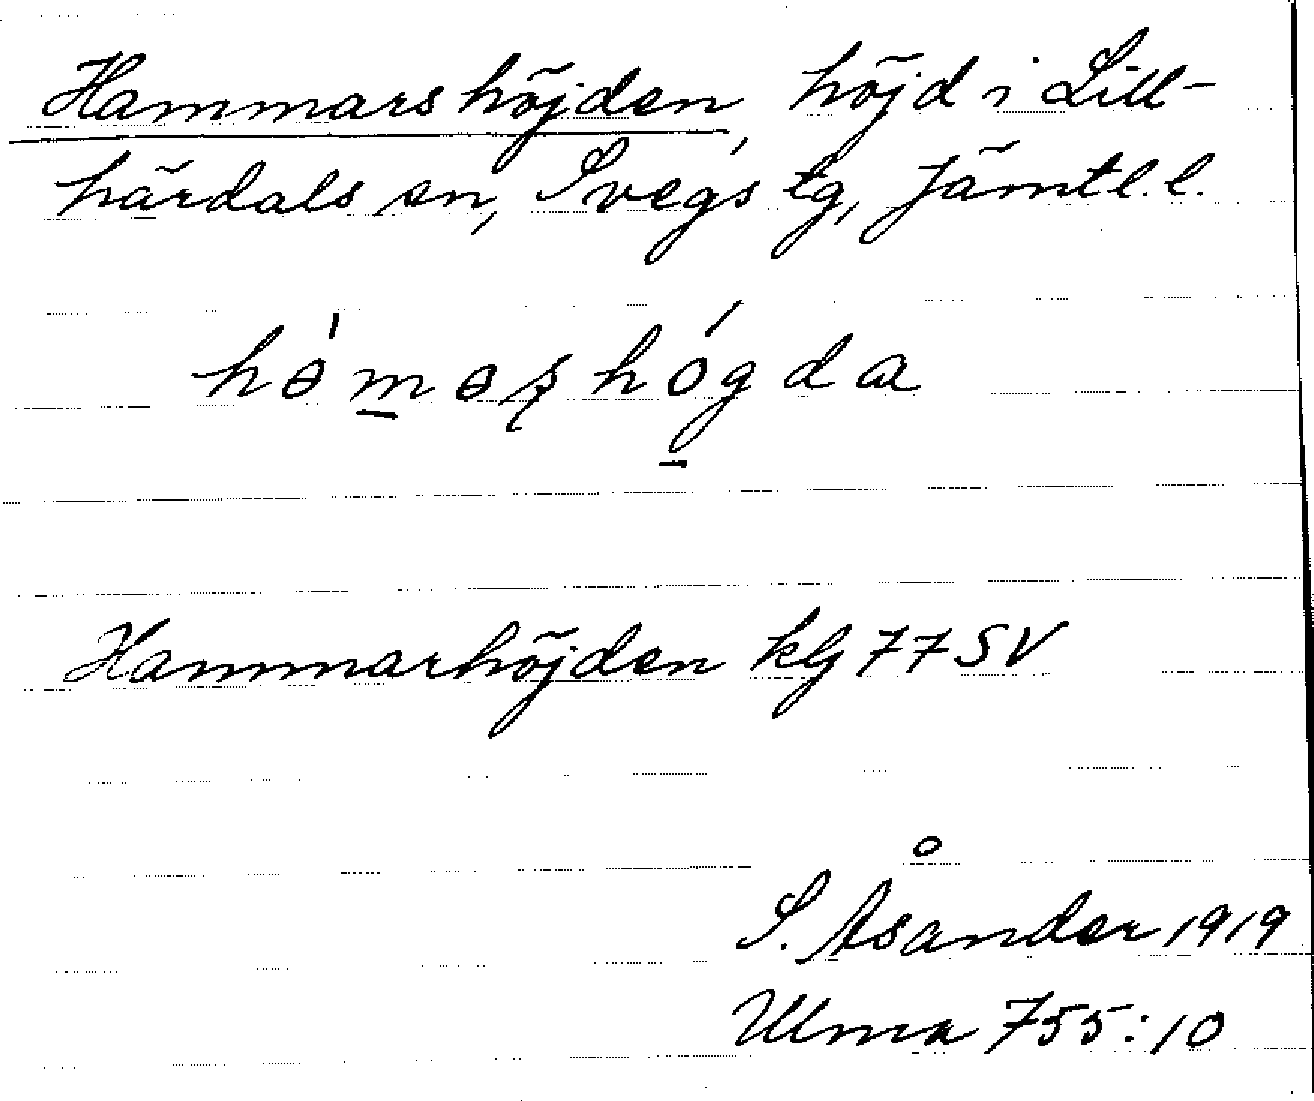 Hammarshöjden, höjd i Lill-
härdals sn, Svegs tg, Jämtl. l.
Hammarhöjden kbl 77 SV
S. Åsander 1919
Ulma 755:10